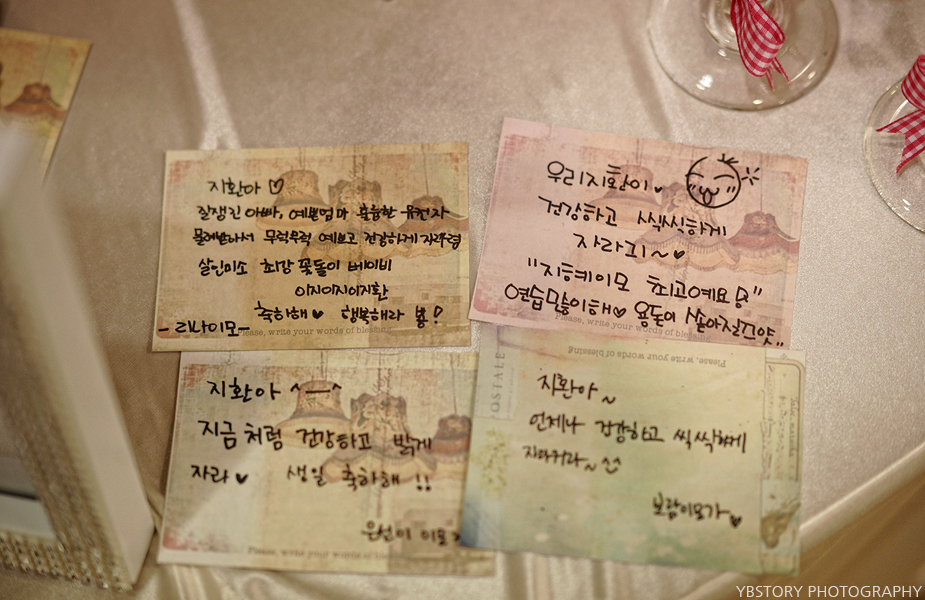 지환아 ♡
잘생긴 아빠, 예쁜엄마 훌륭한 유전자
물려받아서 무럭무럭 예쁘고 건강하게 자라렴
살인미소 최강 꽃돌이 베이비
이지이지이지환
축하해♥ 행복해라 뿅!
-리나이모-
Please, write your words of blessing
우리지환이♥
건강하고 씩씩하게
자라긔~♥
"지혜이모 최고예요
연습많이해♥ 용돈이 쏟아질ㄲ얏"
Please, write your words of blessing
지환아 ^―^
지금처럼 건강하고 밝게
자라♥ 생일 축하해!!
은선이 이모
Please, write your words of blessing
Please, write your words of blessing
지환아~
언제나 건강하고 씩씩하게
자라거라~^^
보람이모가♥
YBSTORY PHOTOGRAPHY